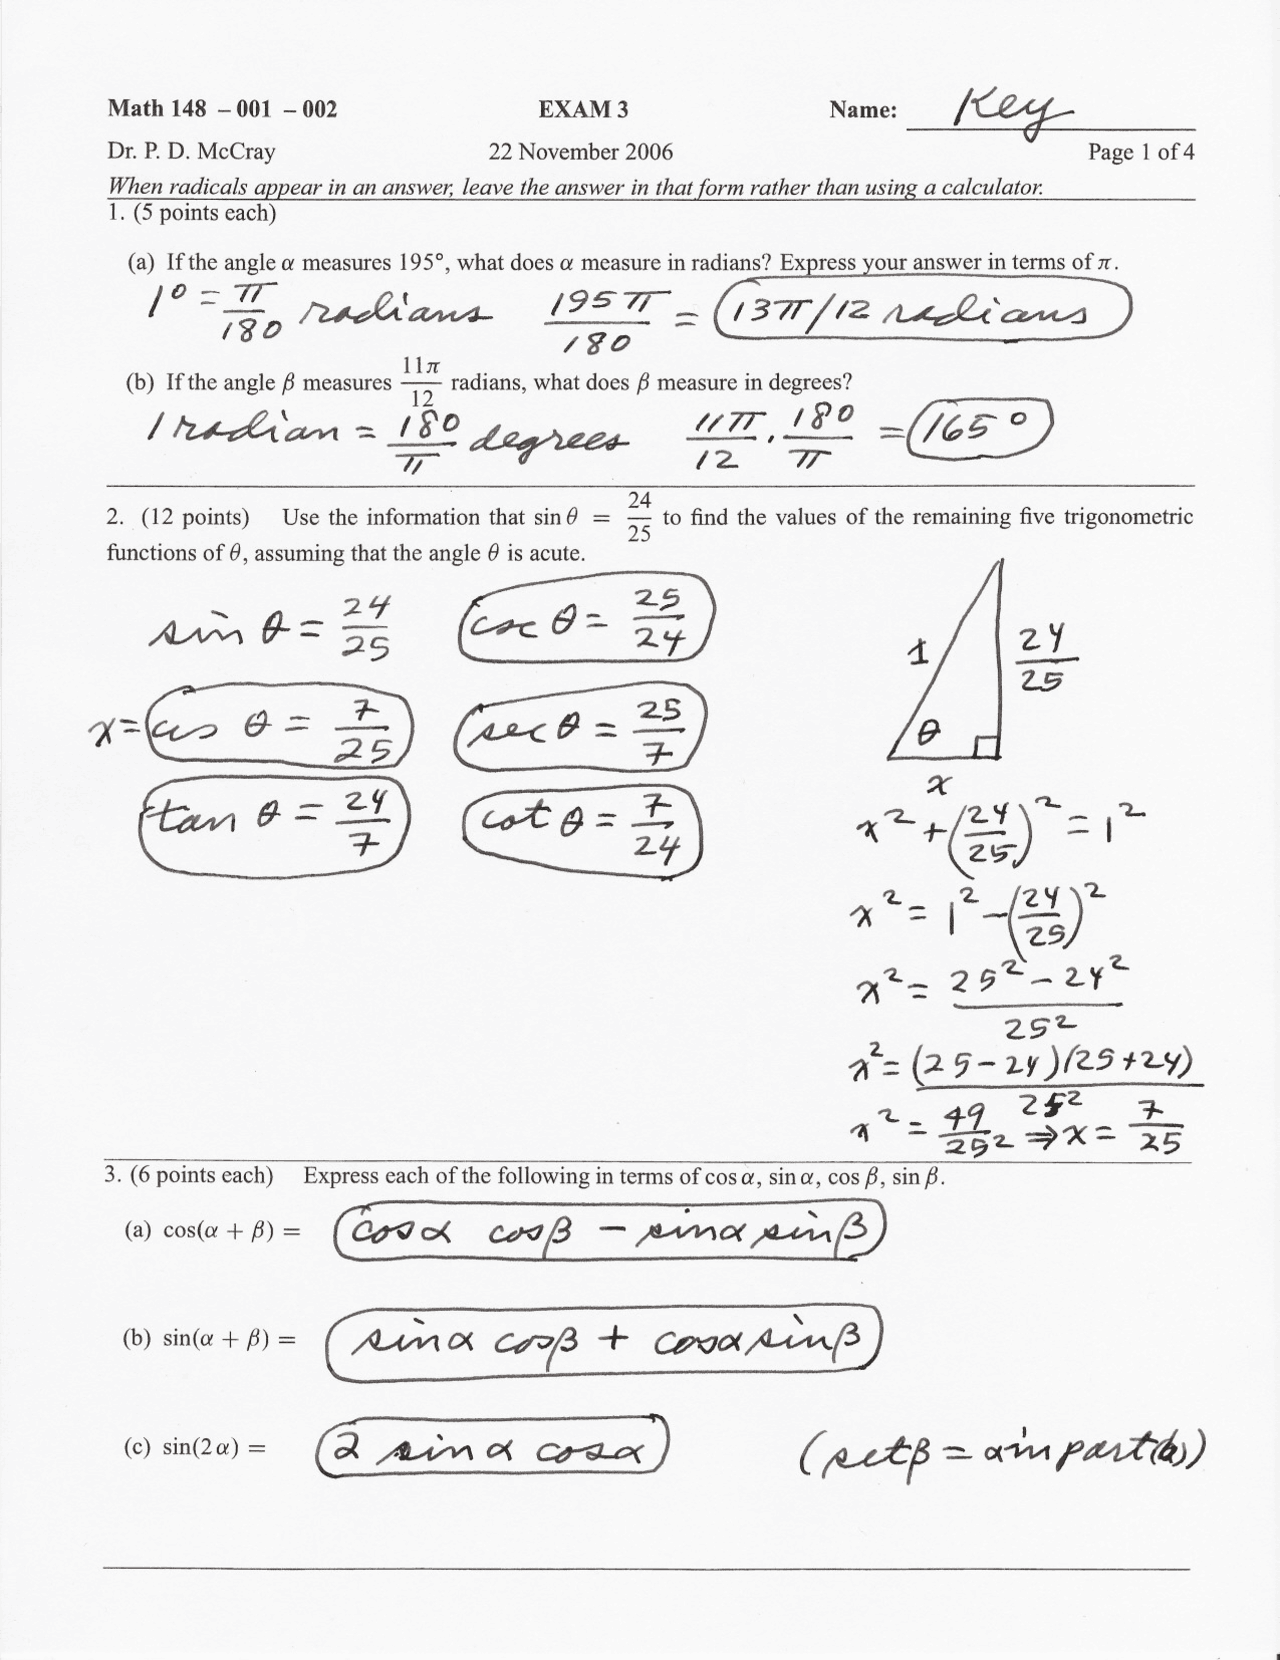 Math 148 – 001 – 002 EXAM 3 Name: Key
Dr. P. D. McCray 22 November 2006 Page 1 of 4
When radicals appear in an answer, leave the answer in that form rather than using a calculator.
1. (5 points each)
(a) If the angle α measures 195°, what does α measure in radians? Express your answer in terms of π.
1° = π/180 radians 195π/180 = 13π/12 radians
(b) If the angle β measures 11π/12 radians, what does β measure in degrees?
1 radian = 180/π degrees 11π/12 · 180/π = 165°
2. (12 points) Use the information that sin θ = 24/25 to find the values of the remaining five trigonometric
functions of θ, assuming that the angle θ is acute.
sin θ = 24/25 csc θ = 25/24
x = cos θ = 7/25 sec θ = 25/7
tan θ = 24/7 cot θ = 7/24
1 24/25
θ
x
x² + (24/25)² = 1²
x² = 1² – (24/25)²
x² = 25² – 24² / 25²
x² = (25 – 24)(25 + 24) / 25²
x² = 49/25² ⇒ x = 7/25
3. (6 points each) Express each of the following in terms of cos α, sin α, cos β, sin β.
(a) cos(α + β) = cos α cos β – sin α sin β
(b) sin(α + β) = sin α cos β + cos α sin β
(c) sin(2 α) = 2 sin α cos α (set β = α in part (b))